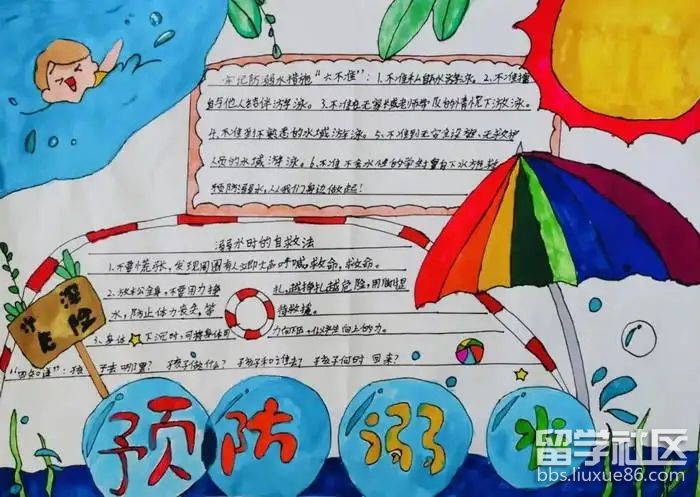 牢记防溺水措施"六不准"：1.不准私自下水游泳。2.不准擅
自与他人结伴游泳。3.不准在无家长或老师带队的情况下游泳。
4.不准到不熟悉的水域游泳。5.不准到无安全设施、无救护
人员的水域游泳。6.不准不会水性的学生擅自下水施救
预防溺水，从我们身边做起！
溺水时的自救法
1.不要慌张，发现周围有人立即大声呼喊救命，救命。
2.放松全身，不要用力挣扎，越挣扎越危险，用脚踢
水，防止体力丧失，等待救援。
3.身体下沉时，可将身体
力向下压，
"四知道"：孩子去哪里？孩子做什么？孩子和谁去？孩子何时回来？
水深
危险
预防溺水
留学社区
bbs.liuxue86.com